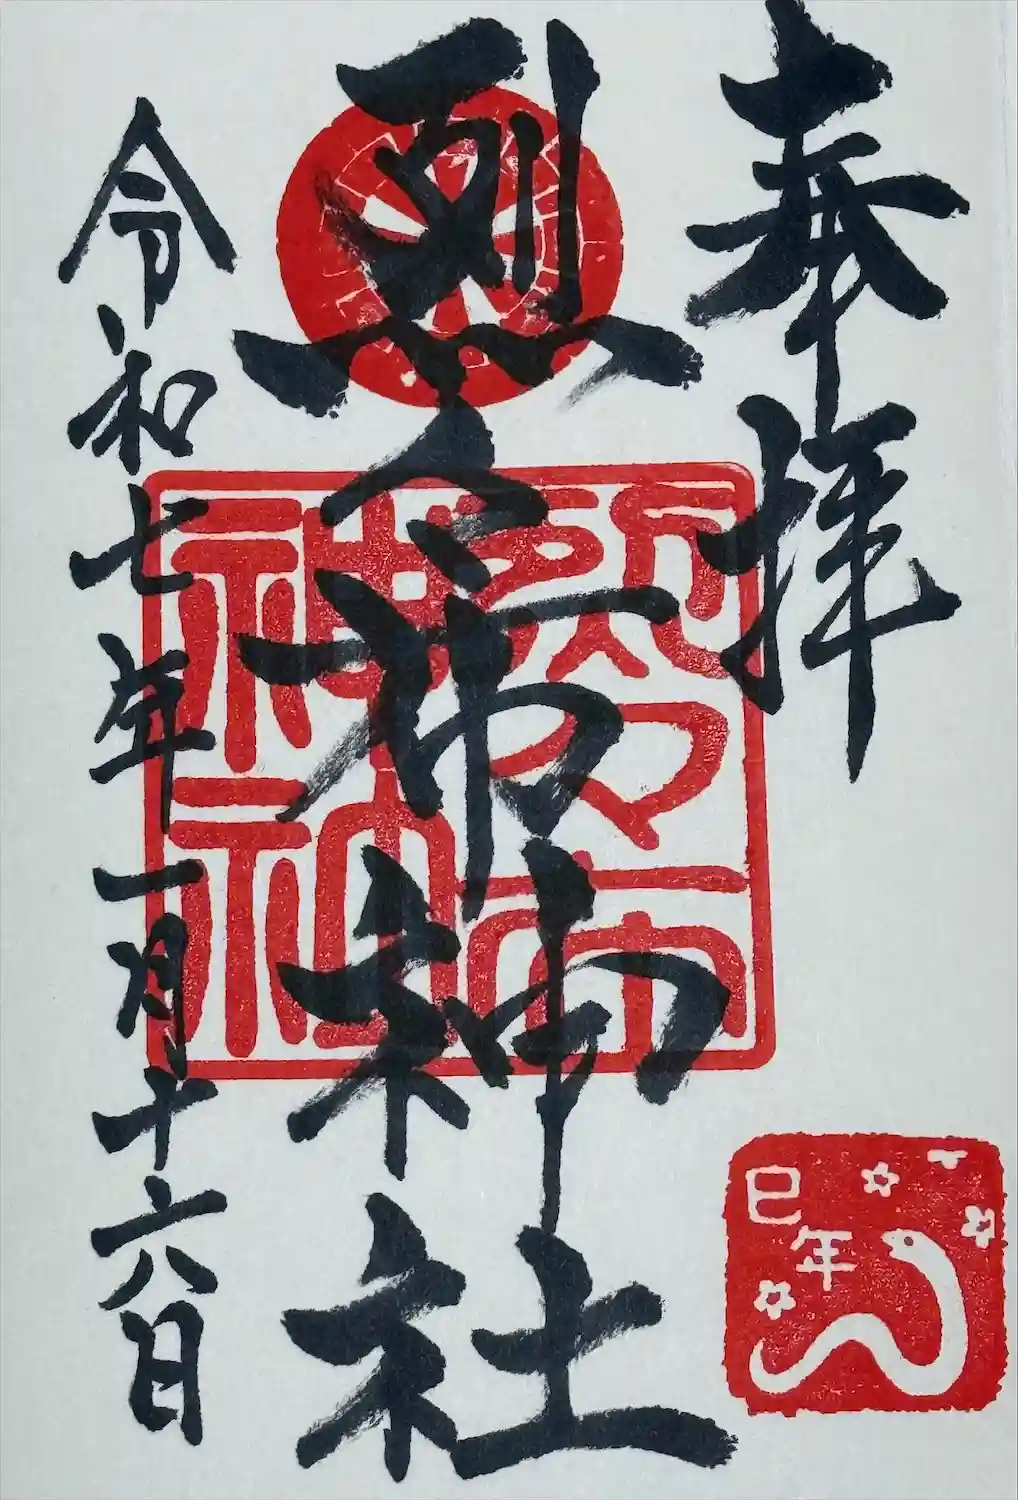 奉拝
烈々布神社
令和七年一月十六日
烈々布
神社
巳年